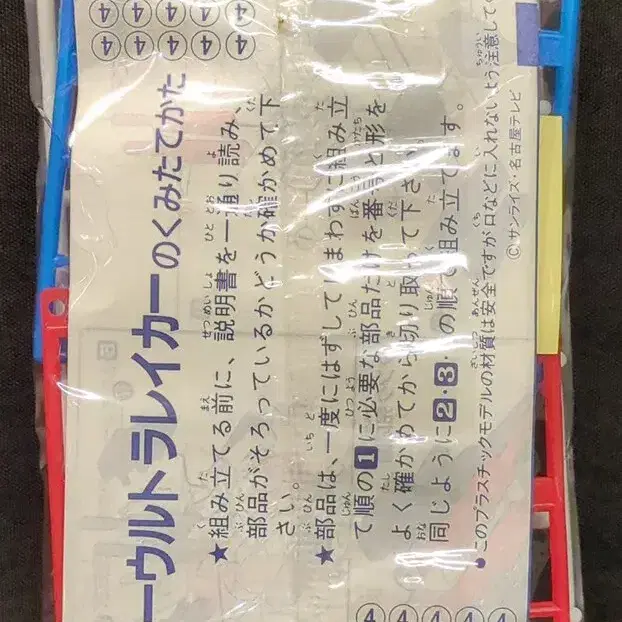 ーウルトラレイカーのくみたてかた
★組み立てる前に、説明書を一通り読み、
部品がそろっているかどうか確かめて下
さい。
★部品は、一度にはずしてしまわずに組み立
て順の1に必要な部品だけを番号と形を
よく確かめてから切り取って下さい。
同じように2・3・の順で組み立てます。
●このプラスチックモデルの材質は安全ですが口などに入れないよう注意して
©サンライズ・名古屋テレビ
④④④④④
④④④④④
④④④④④